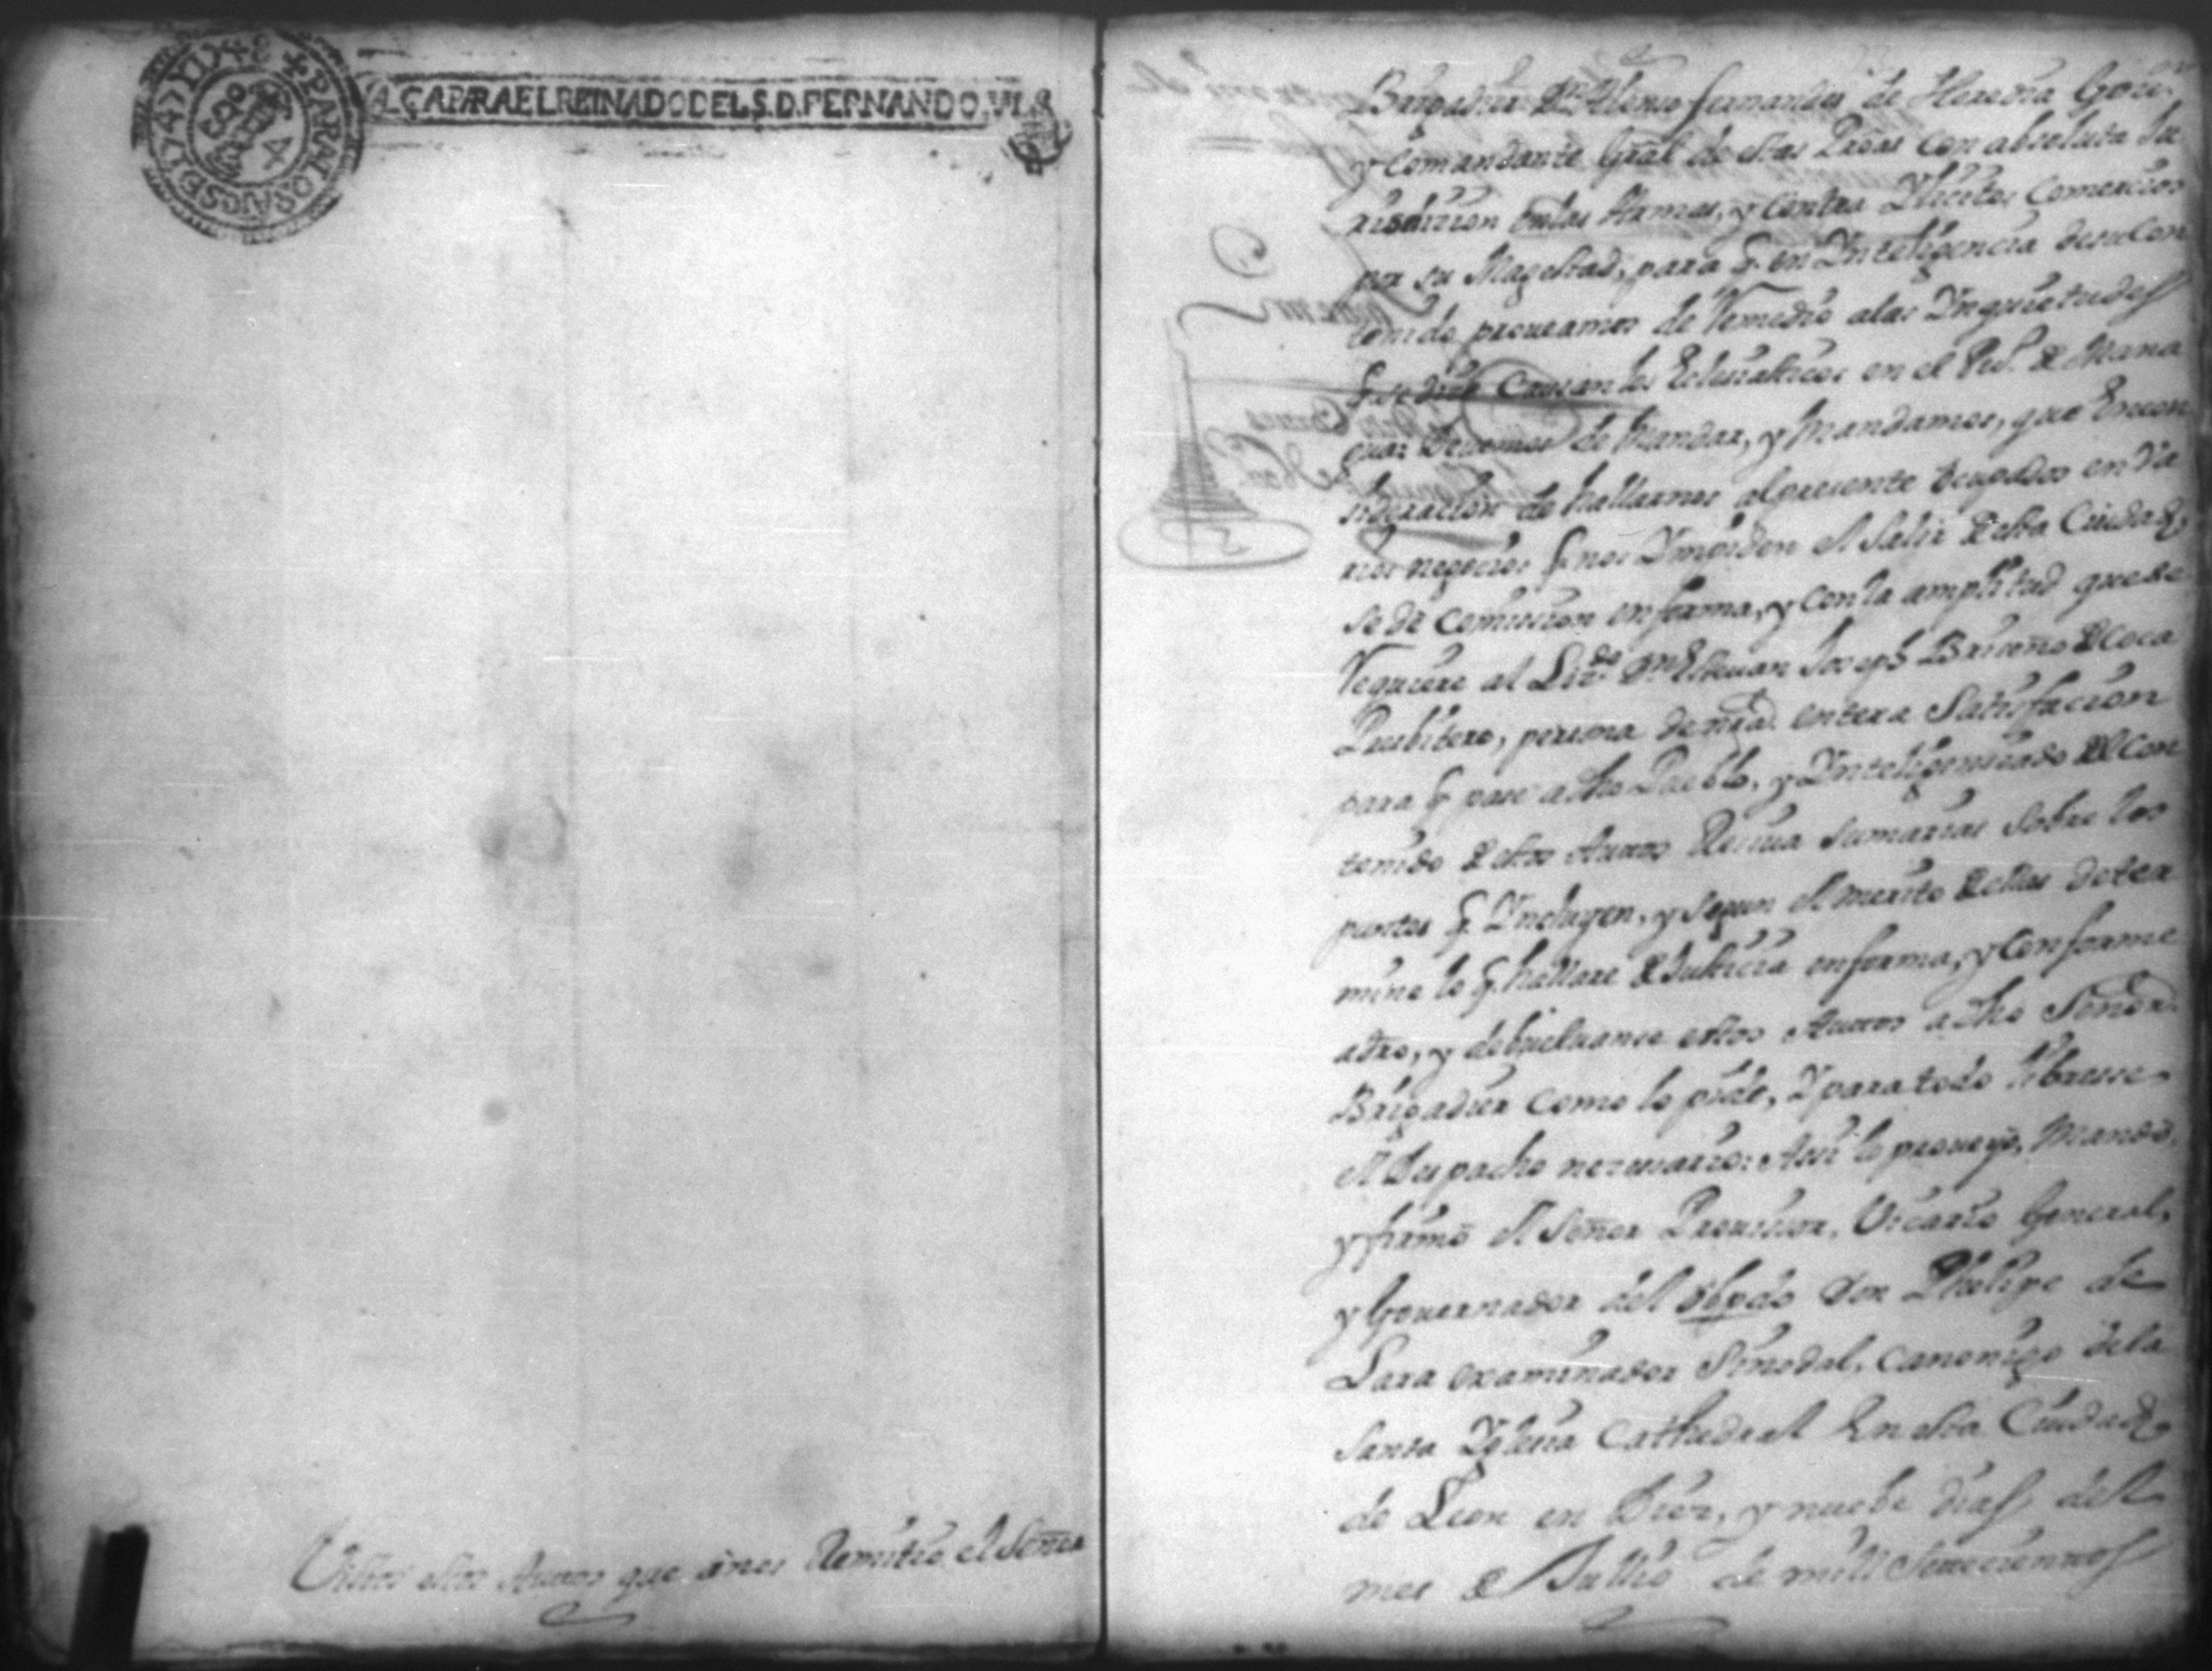 ✠ PARA LOS AÑOS DE 1747 Y 1748
VALGA PARA EL REINADO DEL S. D. FERNANDO. VI.
Vistos estos Autos que ànos Remitio el Señor
Brigadier Dn Alonso fernandez de Heredia Gov.
y Comandante Gral de estas Provas con absoluta Ju
risdicion enlas Armas, y Contra Ylicitos Comercios
por su Magestad, para q. en Ynteligencia desu Con
tenido proveamos de Remedio alas Ynquietudes
q. se dice Causan los Eclesiasticos en el Pueº de Mana
gua: Devemos de Mandar, y Mandamos, que Encon
sideracion de hallarnos alpresente Ocupados en Va
rios negocios q. nos Ympiden el Salir de esta Ciudad,
se dè Comission en forma, y con la amplitud que se
Requiere al Lizdo Dn Estevan Joseph Brizeño de Coca
Presbitero, persona de nra. entera Satisfacion
para q. pase a dho Pueblo, y Ynteligenciado del Con
tenido de estos Autos Reciva Sumarias Sobre los
puntos q. Yncluyen, y segun el merito de ellas deter
mine lo q. hallare de Justicia en forma, y Conforme
adro, y debuelvanse estos Autos a dho Señor
Brigadier como lo pide, Y para todo librese
el Despacho nezesario: Assi lo proveyò, Mandò,
y firmò el Señor Provisor, Vicario General,
y Governador del Obpdo Don Phelipe de
Lara examinador Sinodal, Canonigo dela
Santa Yglesia Cathedral En esta Ciudad
de Leon en Diez, y nuebe dias del
mes de Jullio de mill Setecientos